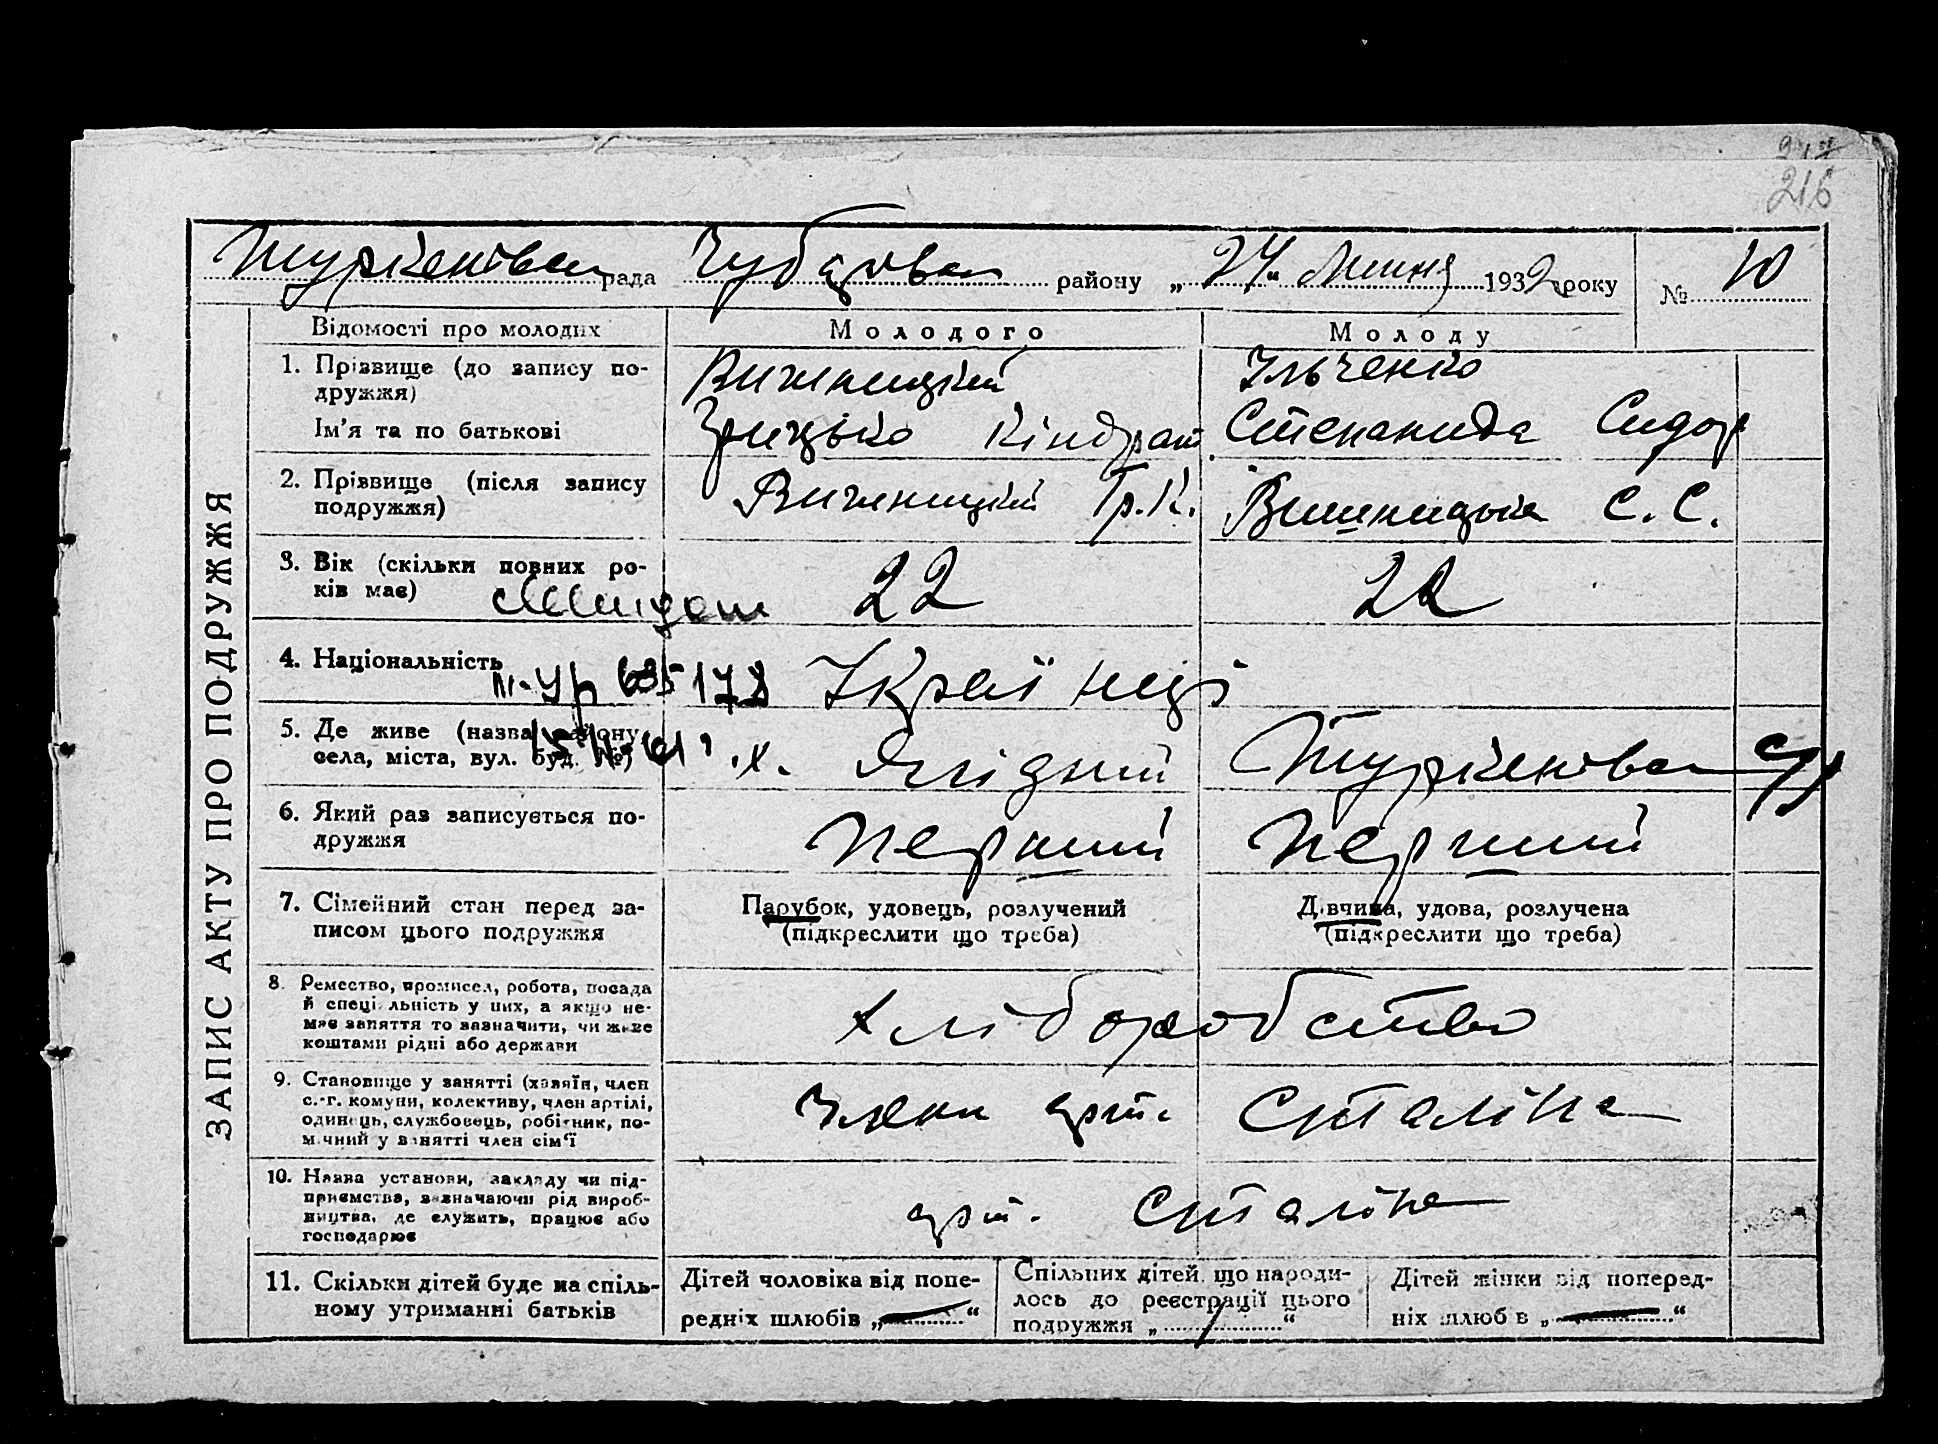 216
Туркенівська рада Чубарівськ району „24“ Липня 1932 року № 10
ЗАПИС АКТУ ПРО ПОДРУЖЖЯ
Відомості про молодих
Молодого
Молоду
1. Прізвище (до запису по-
дружжя)
Ім'я та по батькові
Вишницкий
Грицько Кіндрат
Ільченко
Степанида Сидор
2. Прізвище (після запису
подружжя)
Вишницкий Гр.К.
Вишницька С.С.
3. Вік (скільки повних ро-
ків має)
22
22
4. Національність
Українці
5. Де живе (назва району,
села, міста, вул. буд. №)
х.
Туркенівка
6. Який раз записується по-
дружжя
Перший
Перший
7. Сімейний стан перед за-
писом цього подружжя
Парубок, удовець, розлучений
(підкреслити що треба)
Дівчина, удова, розлучена
(підкреслити що треба)
8. Ремество, промисел, робота, посада
й спеціальність у них, а якщо не-
має заняття то зазначити, чи живе
коштами рідні або держави
Хліборобство
9. Становище у занятті (хазяїн, член
с.-г. комуни, колективу, член артілі,
одинець, службовець, робітник, по-
мічний у занятті член сім'ї
Члени арт. Сталіна
10. Назва установи, закладу чи під-
приємства, зазначаючи рід вироб-
ництва, де служить, працює або
господарює
арт. Сталіна
11. Скільки дітей буде на спіль-
ному утриманні батьків
Дітей чоловіка від попе-
редніх шлюбів „ “
Спільних дітей, що народи-
лось до реєстрації цього
подружжя „ “
Дітей жінки від поперед-
ніх шлюбів „ “